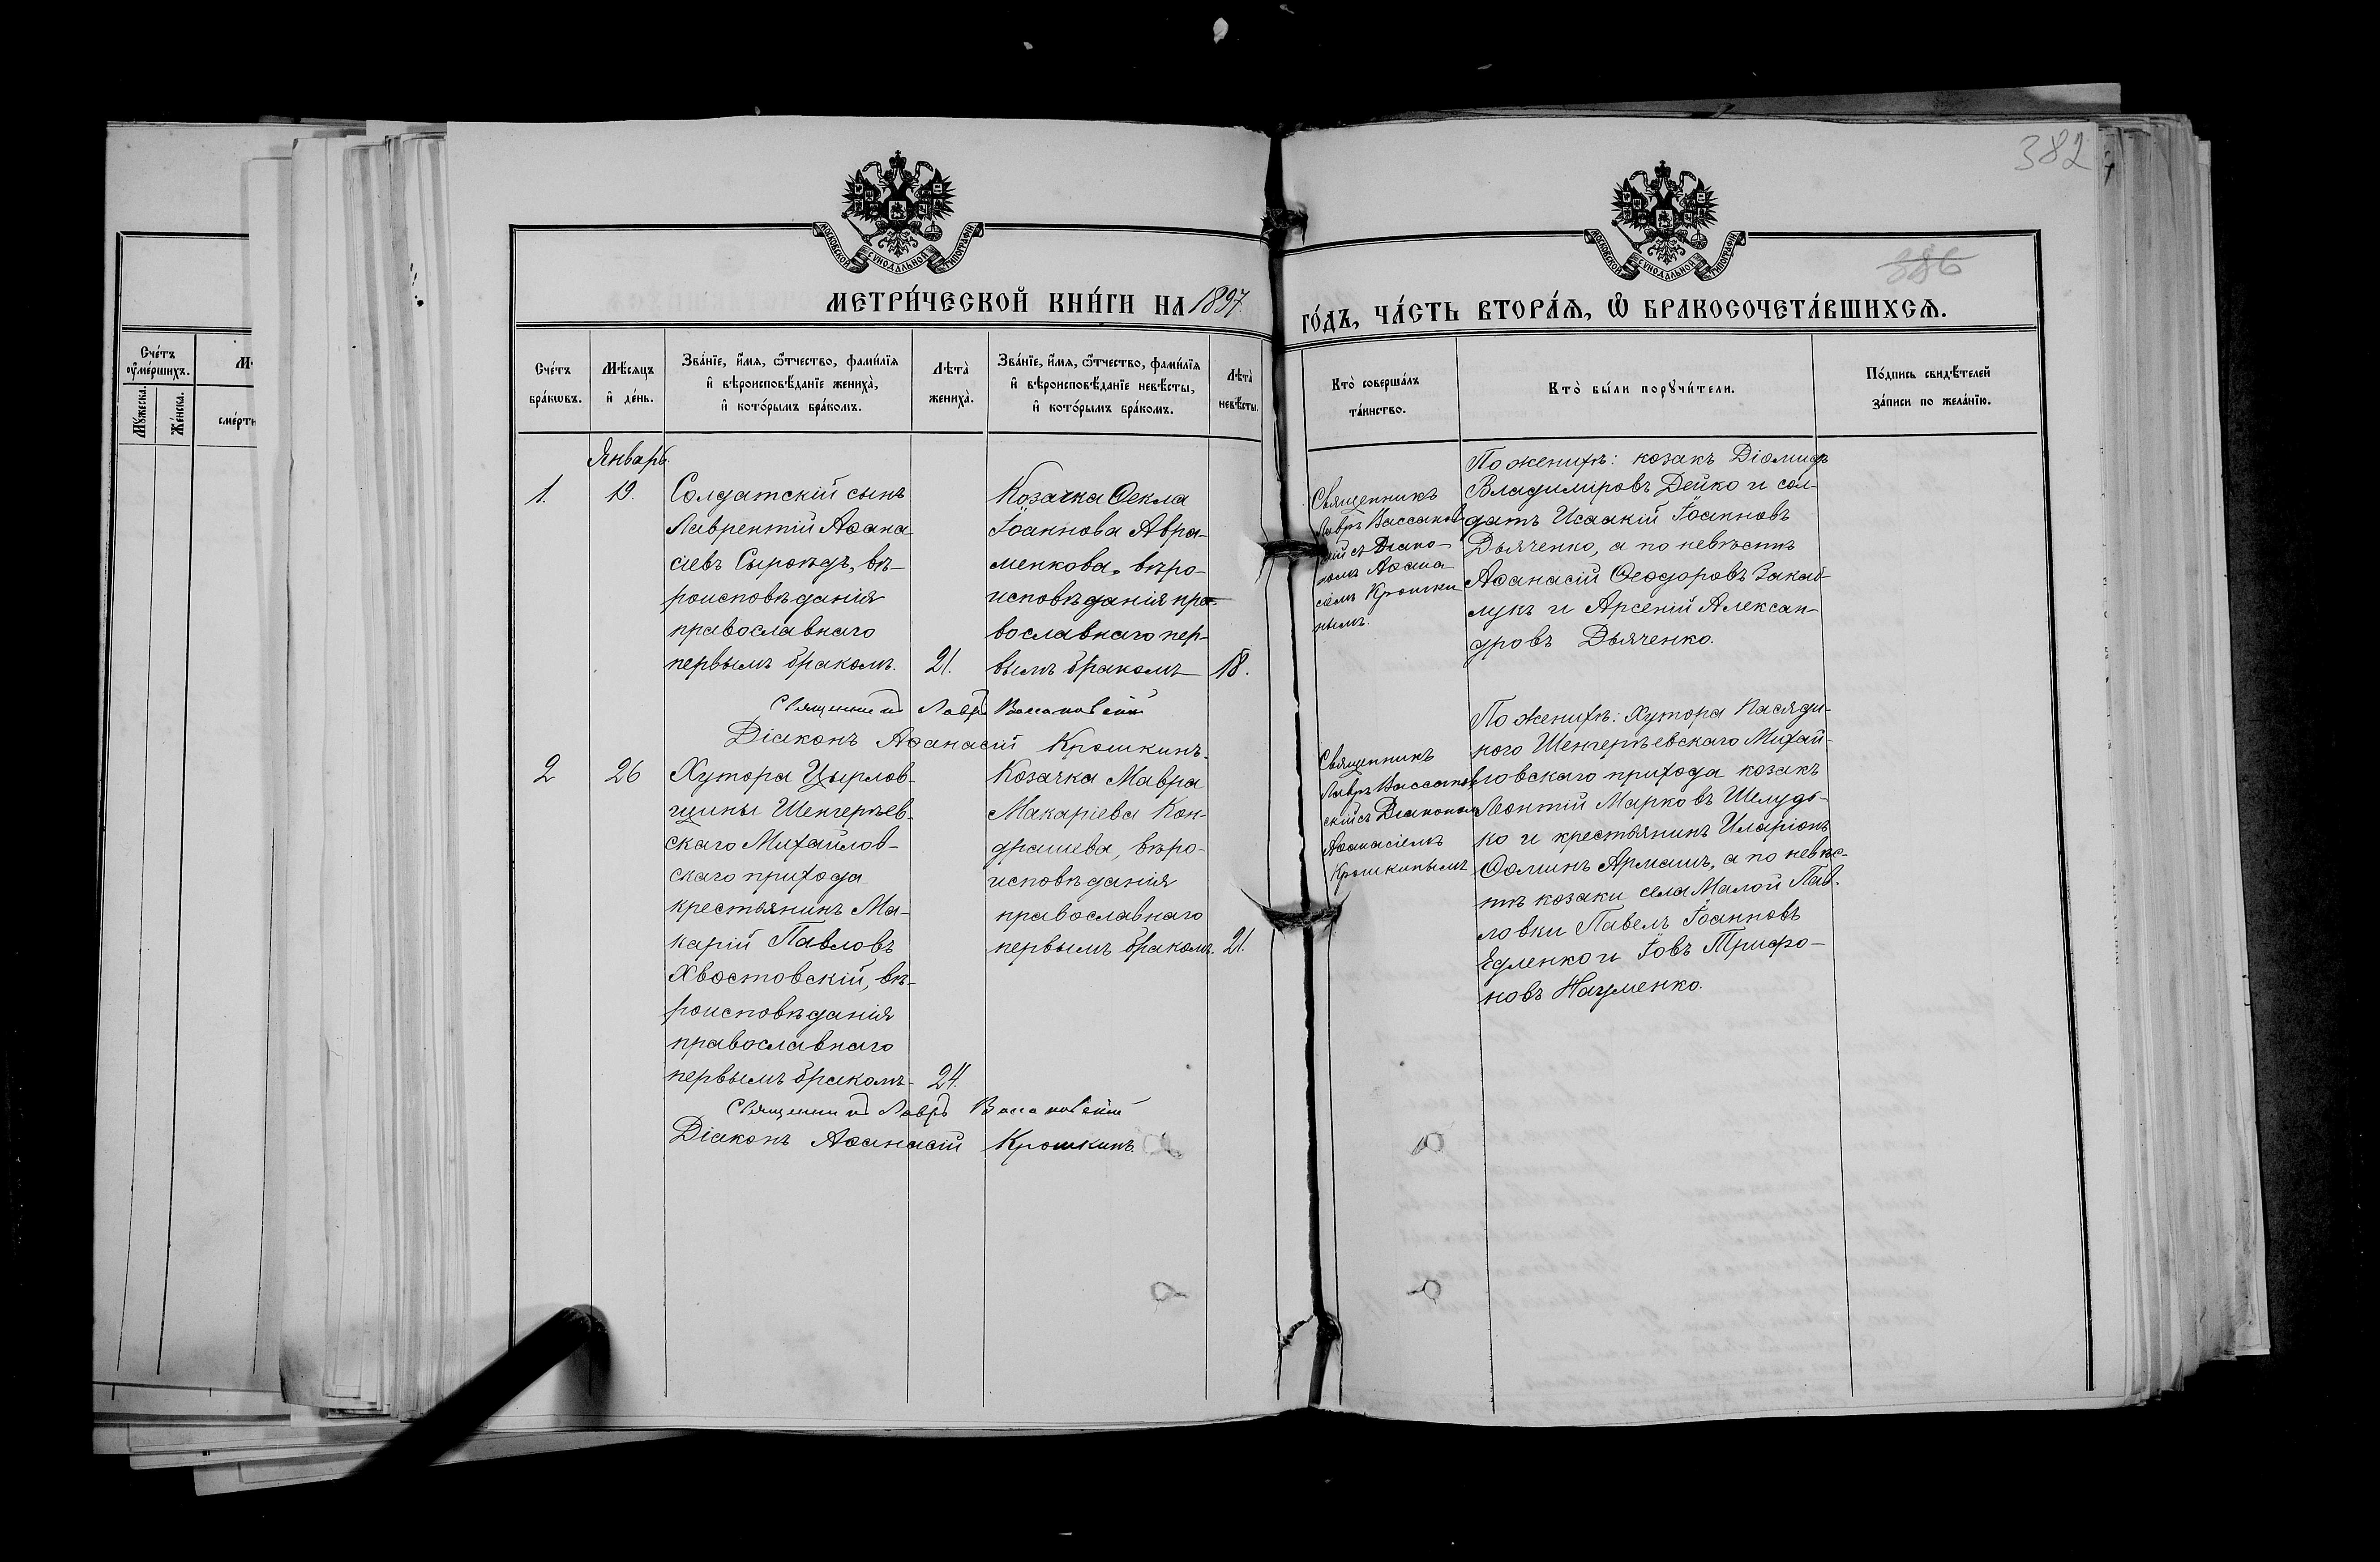 382
386
МОСКОВСКОЙ СѴНОДАЛЬНОЙ ТИПОГРАФІИ
МОСКОВСКОЙ СѴНОДАЛЬНОЙ ТИПОГРАФІИ
МЕТРИ́ЧЕСКОЙ КНИ́ГИ НА 1897.
ГО́ДЪ, ЧА́СТЬ ВТОРА́Ѧ, Ѽ БРАКОСОЧЕТА́ВШИХСѦ.
Сче́тъ
оу҆ме́ршихъ.
Мꙋ́жеска.
Же́нска.
сме́рти
Сче́тъ
бра́кѡвъ.
Мѣ́сяцъ
и҆ де́нь.
Зва́нїе, и҆́мя, ѻ҆́тчество, фами́лїя
и҆ вѣроисповѣ́данїе жениха̀,
и҆ кото́рымъ бра́комъ.
Лѣта̀
жениха̀.
Зва́нїе, и҆́мя, ѻ҆́тчество, фами́лїя
и҆ вѣроисповѣ́данїе невѣ́сты,
и҆ кото́рымъ бра́комъ.
Лѣта̀
невѣ́сты.
Кто̀ соверша́лъ
та́инство.
Кто̀ бы́ли порꙋчи́тели.
По́дпись свидѣ́телей
за́писи по жела́нїю.
Январь.
1.
19.
Солдатскій сынъ
Лаврентій Аѳана
сіевъ Сыроѣдъ, вѣ-
роисповѣданія
православнаго
первымъ бракомъ.
21.
Козачка Ѳекла
Іоаннова Авра-
менкова, вѣро-
исповѣданія пра-
вославнаго пер-
вымъ бракомъ
18.
Священникъ
Лавръ Вассаков
скій съ Діако-
номъ Аѳана-
сіемъ Крошки
нымъ.
По женихѣ: козакъ Діомидъ
Владиміровъ Дейко и сол-
датъ Исаакій Іоанновъ
Дьяченко, а по невѣстѣ
Аѳанасій Ѳеодоровъ Закаб-
лукъ и Арсеній Алексан-
дровъ Дьяченко.
Священникъ Лавръ Вассаковскій
Діаконъ Аѳанасій Крошкинъ.
2
26
Хутора Цырлов-
щины Шенгерѣев-
скаго Михайлов-
скаго прихода
крестьянинъ Ма-
карій Павловъ
Хвостовскій, вѣ-
роисповѣданія
православнаго
первымъ бракомъ-
24.
Козачка Мавра
Макаріева Кон-
драшева, вѣро-
исповѣданія
православнаго
первымъ бракомъ.
21.
Священникъ
Лавръ Вассаков
скій съ Діакономъ
Аѳанасіемъ
Крошкинымъ
По женихѣ: Хутора Насяди-
ного Шенгерѣевскаго Михай-
ловскаго прихода козакъ
Леонтій Марковъ Шелудь-
ко и крестьянинъ Иларіонъ
Ѳоминъ Армашъ, а по невѣс-
тѣ козаки села Малой Пав-
ловки Павелъ Іоанновъ
Едленко и Іовъ Трифо-
новъ Науменко.
Священникъ Лавръ Вассаковскій
Діаконъ Аѳанасій Крошкинъ.